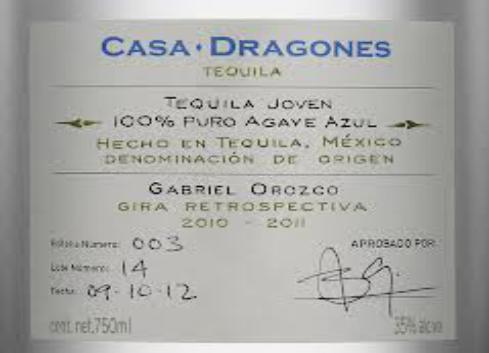 CASA · DRAGONES
TEQUILA
TEQUILA JOVEN
100% PURO AGAVE AZUL
HECHO EN TEQUILA, MÉXICO
DENOMINACIÓN DE ORIGEN
GABRIEL OROZCO
GIRA RETROSPECTIVA
2010 - 2011
Botella Número: 003
APROBADO POR
Lote Número: 14
Fecha: 09-10-12
cont. net. 750ml
35% alc